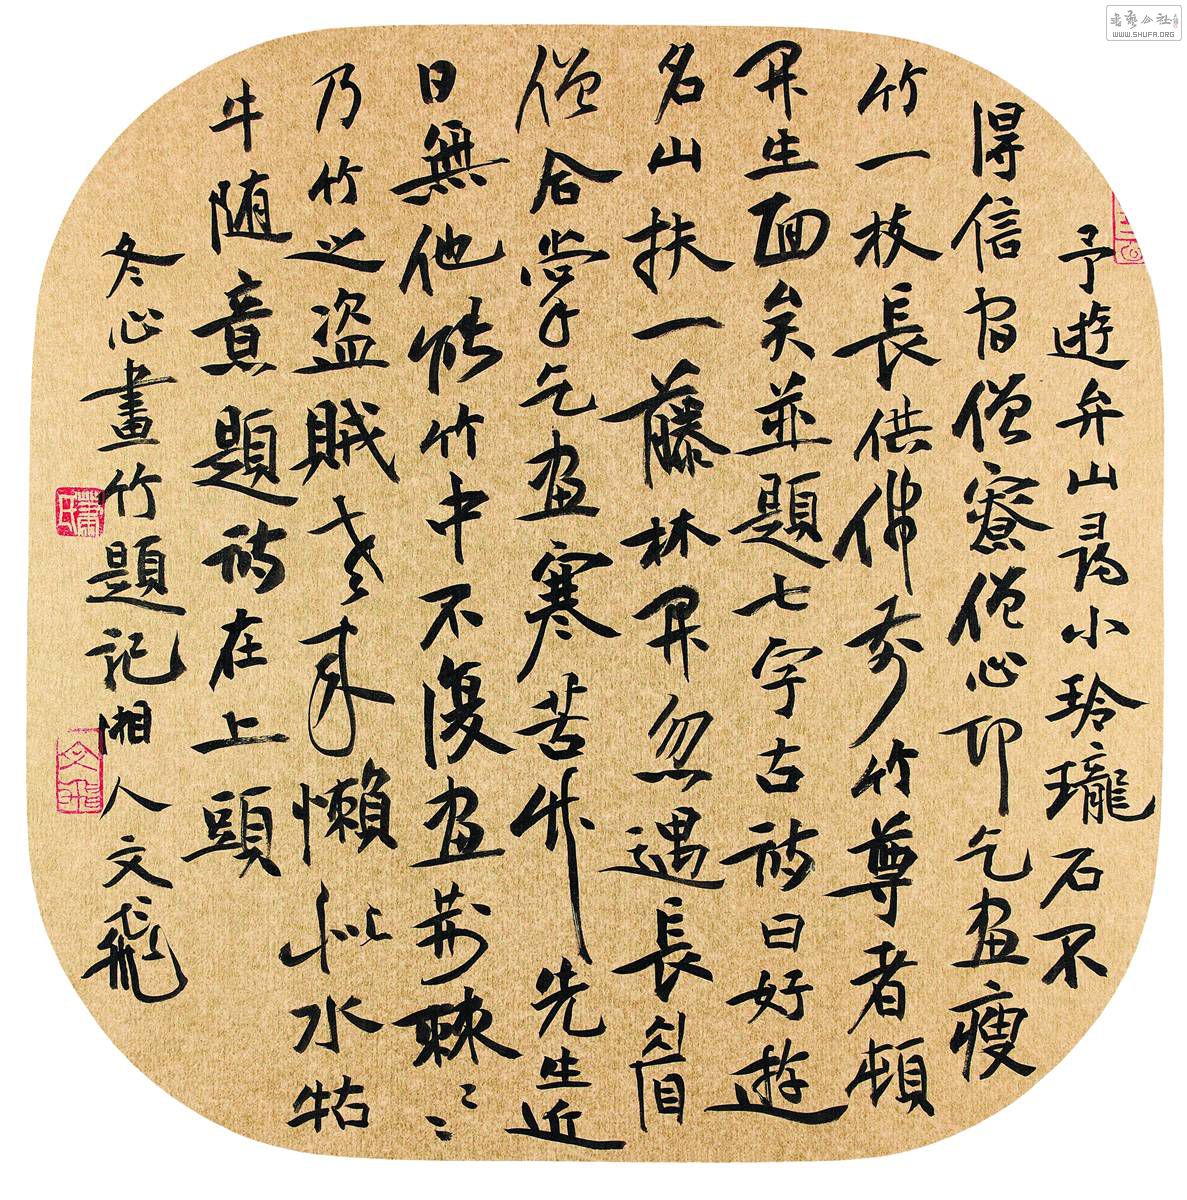 予遊弁山曷小玲瓏石不
得信宿僧寮僧心印乞画瘦
竹一枝長供佛前竹尊者頓
開生面矣並題七字古詩曰好遊
名山扶一藤林間忽遇長眉
僧合掌乞画寒苦竹先生近
日無他能竹中不復画荆棘荆棘
乃竹之盗賊老來懶似水牯
牛随意題詩在上頭
冬心畫竹題記湘人文飛
WWW.SHUFA.ORG